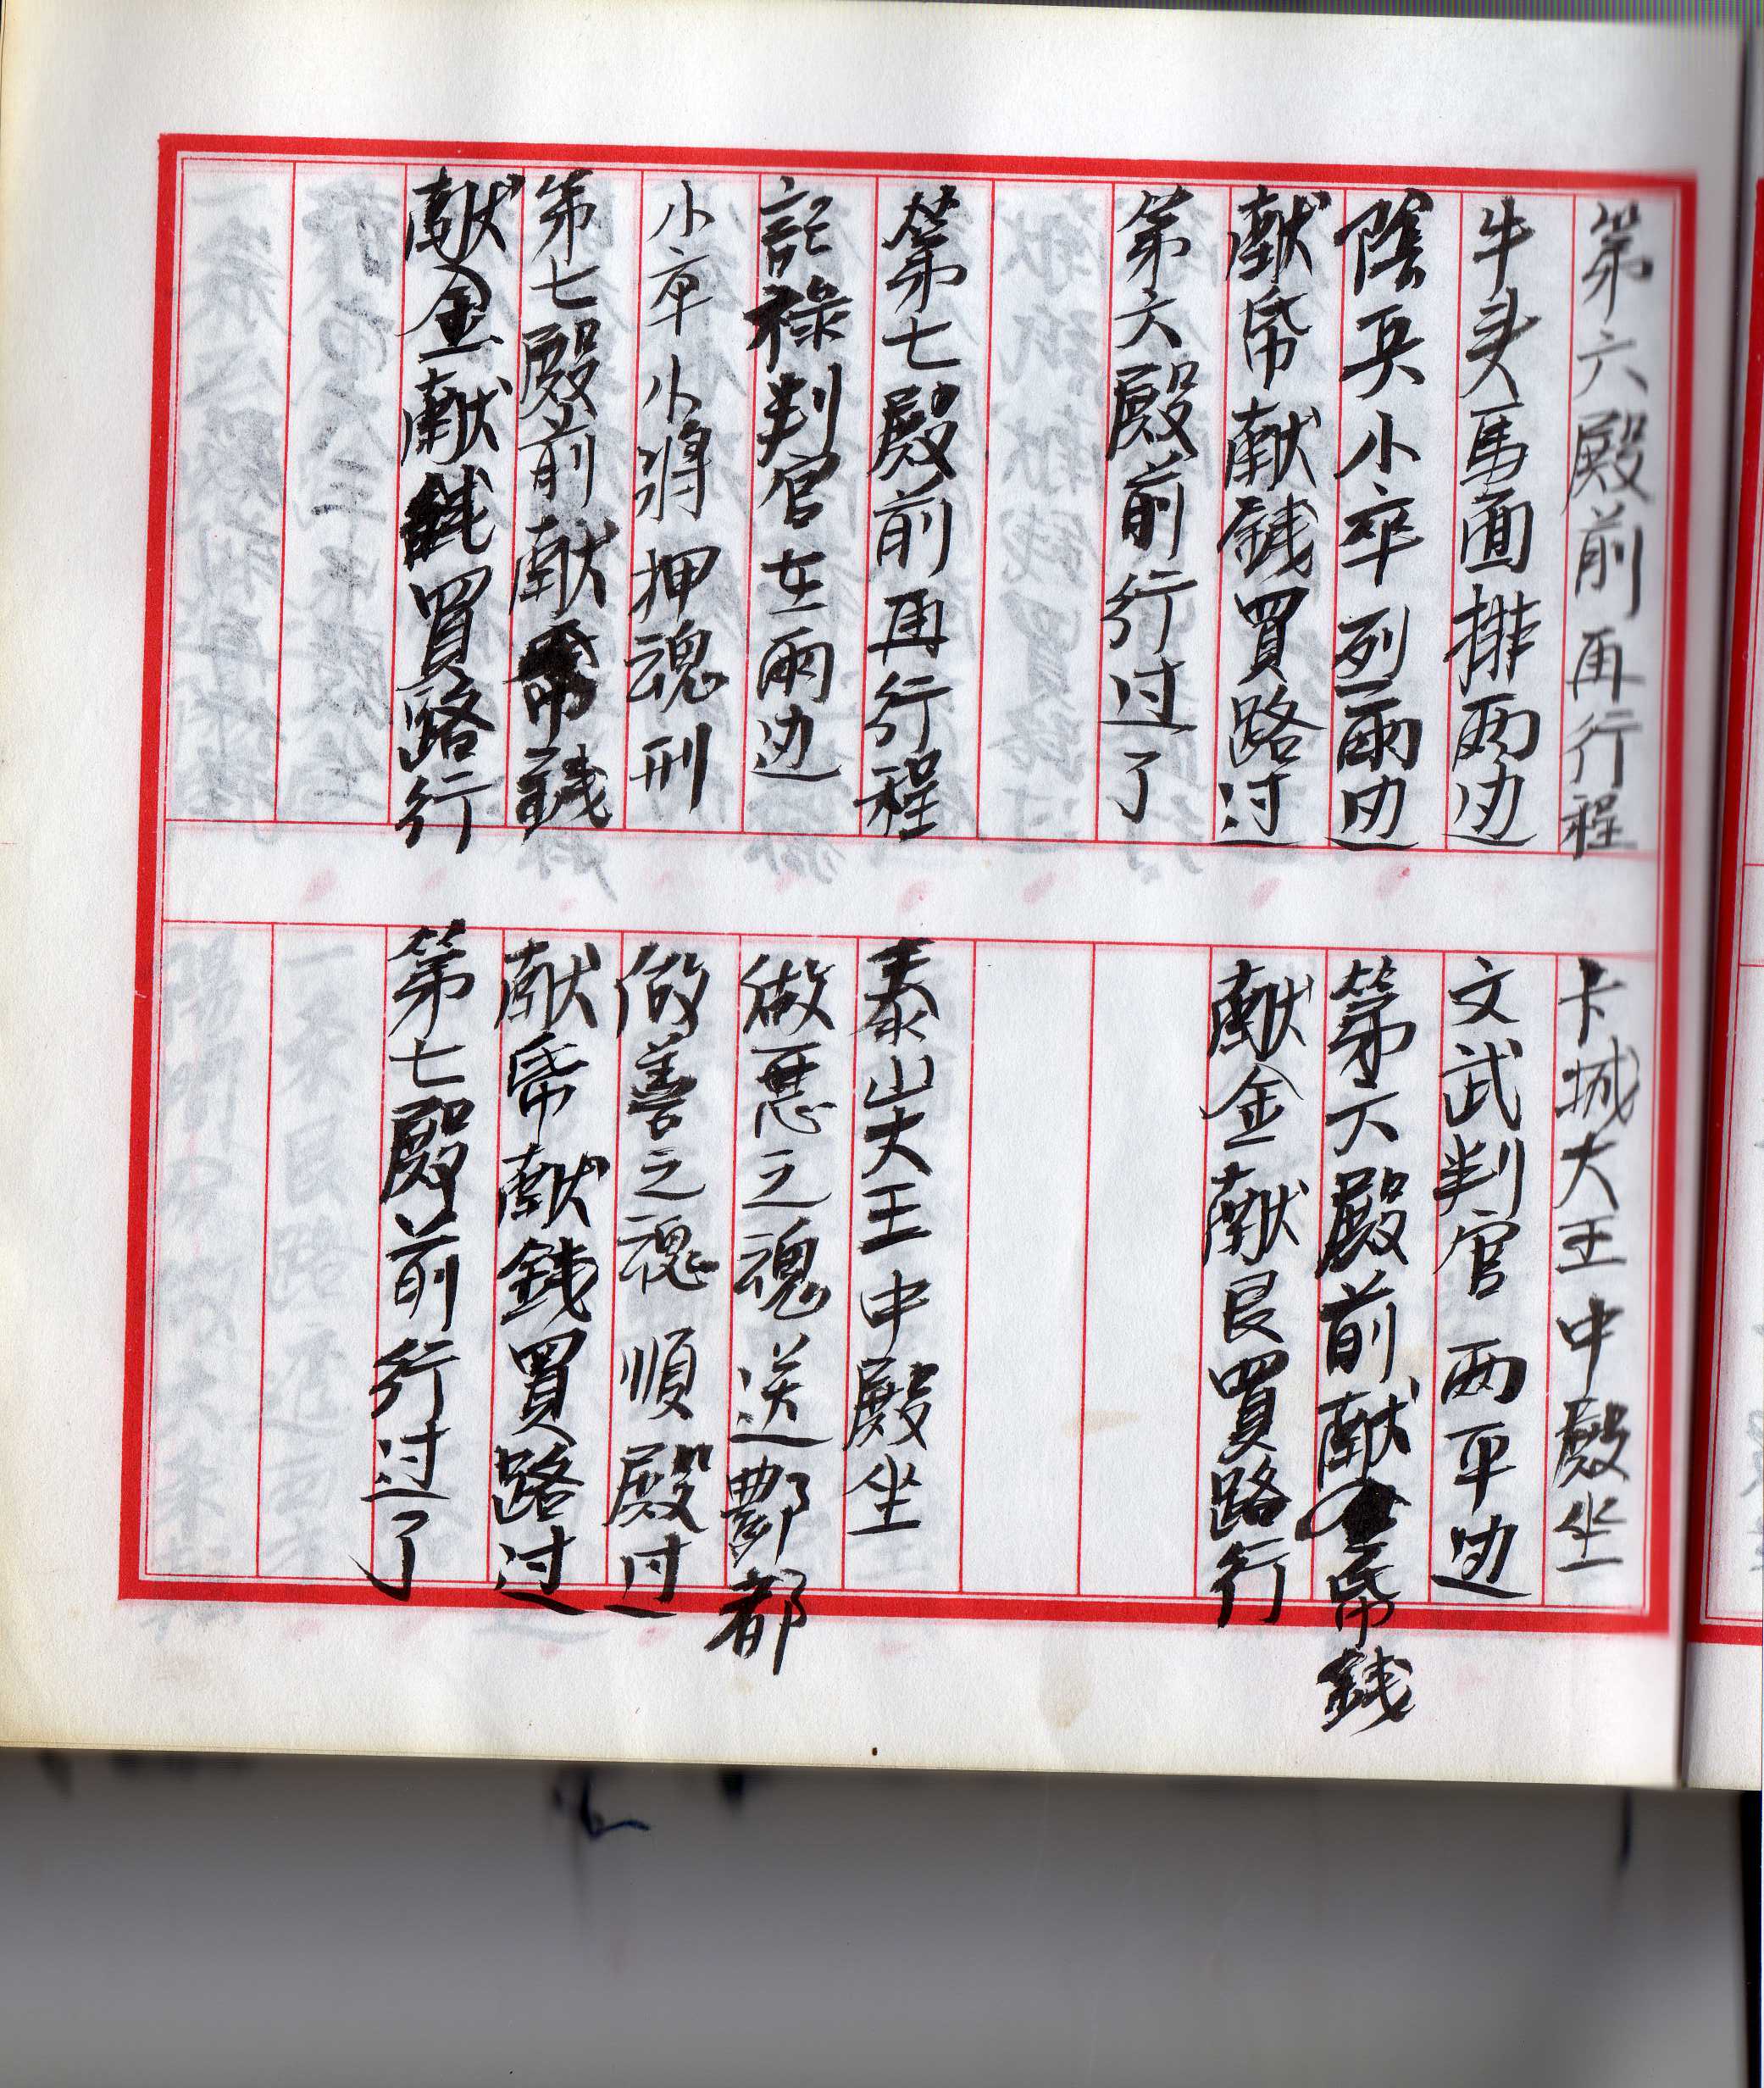 第六殿前再行程
卡城大王中殿坐
牛头馬面排两边
文武判官两平边
陰兵小卒列兩边
第六殿前献帋錢
献帋献錢買路过
献金献艮買路行
第六殿前行过了
第七殿前再行程
泰山大王中殿坐
記祿判官在兩边
做惡之魂送酆都
小卒小将押魂刑
做善之魂順殿过
第七殿前献帋錢
献帋献錢買路过
献金献錢買路行
第七殿前行过了